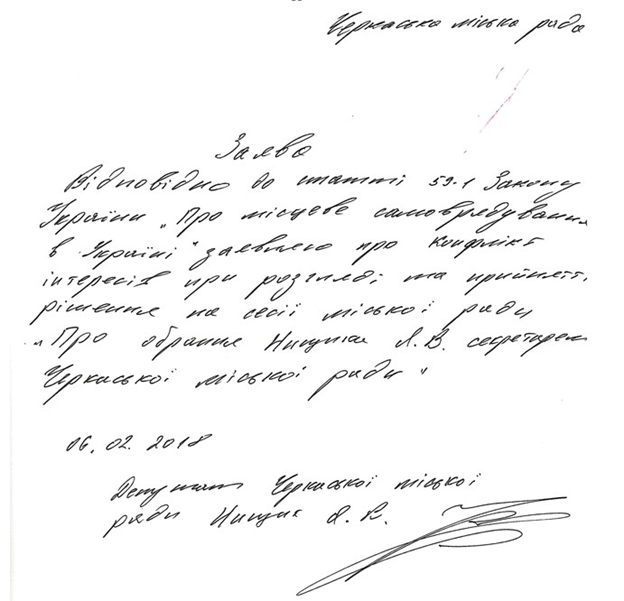 Черкаська міська рада
Заява
Відповідно до статті 59-1 Закону
України „Про місцеве самоврядування
в Україні" заявляю про конфлікт
інтересів при розгляді та прийнятті
рішення на сесії міської ради
„Про обрання Нищика А.В. секретарем
Черкаської міської ради"
06.02.2018
Депутат Черкаської міської
ради Нищик А.В.